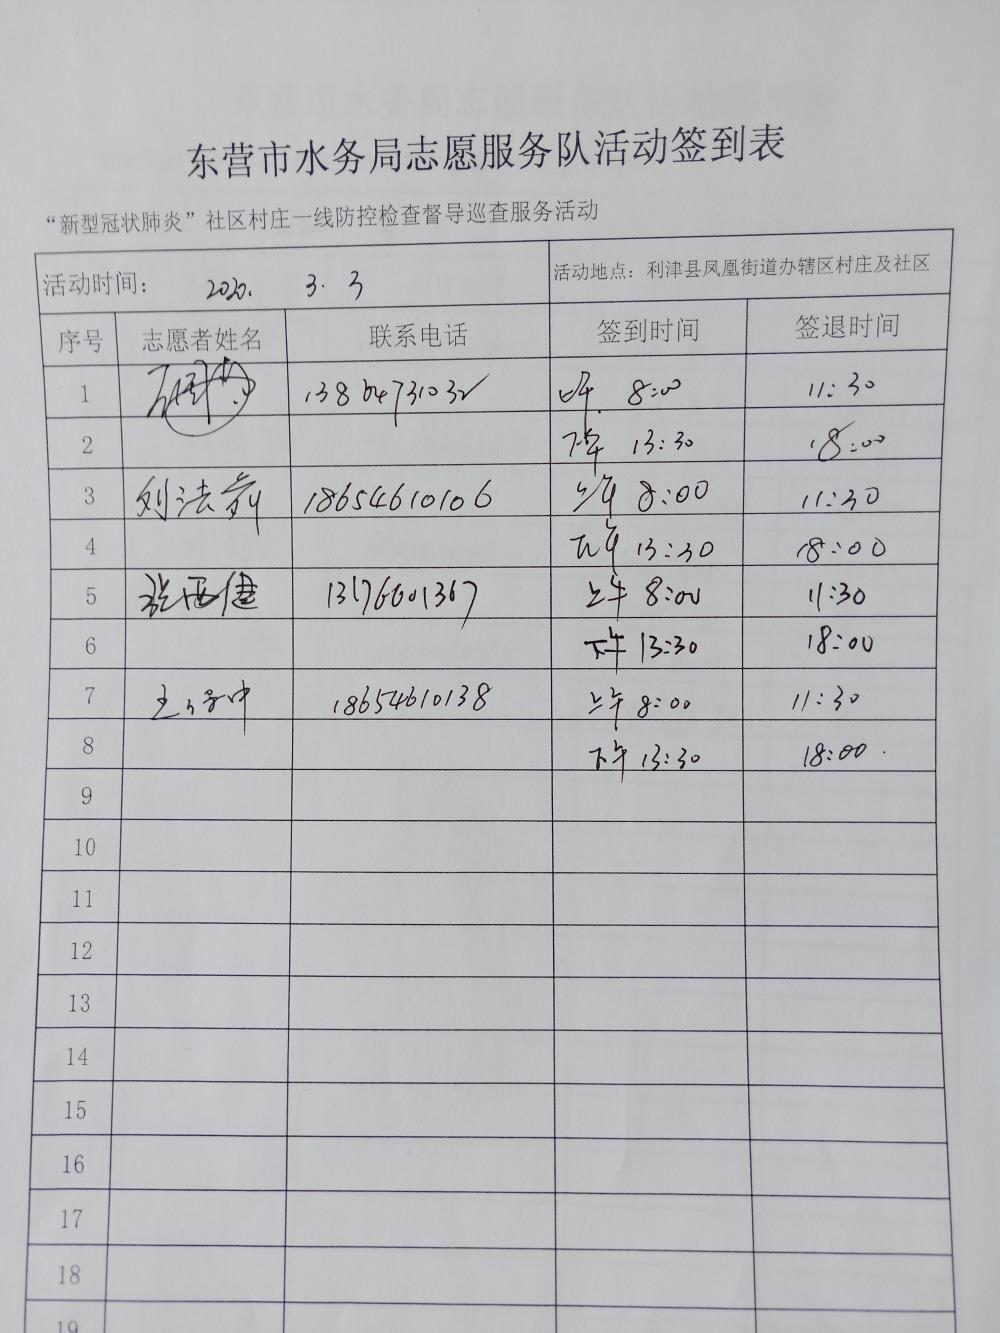 东营市水务局志愿服务队活动签到表
“新型冠状肺炎”社区村庄一线防控检查督导巡查服务活动
活动时间： 2020. 3. 3 活动地点：利津县凤凰街道办辖区村庄及社区
序号 志愿者姓名 联系电话 签到时间 签退时间
1 13864731032 上午 8:00 11:30
2 下午 13:30 18:00
3 刘法前 18654610106 上午 8:00 11:30
4 下午 13:30 18:00
5 张西健 13176601367 上午 8:00 11:30
6 下午 13:30 18:00
7 18654610138 上午 8:00 11:30
8 下午 13:30 18:00
9
10
11
12
13
14
15
16
17
18
19